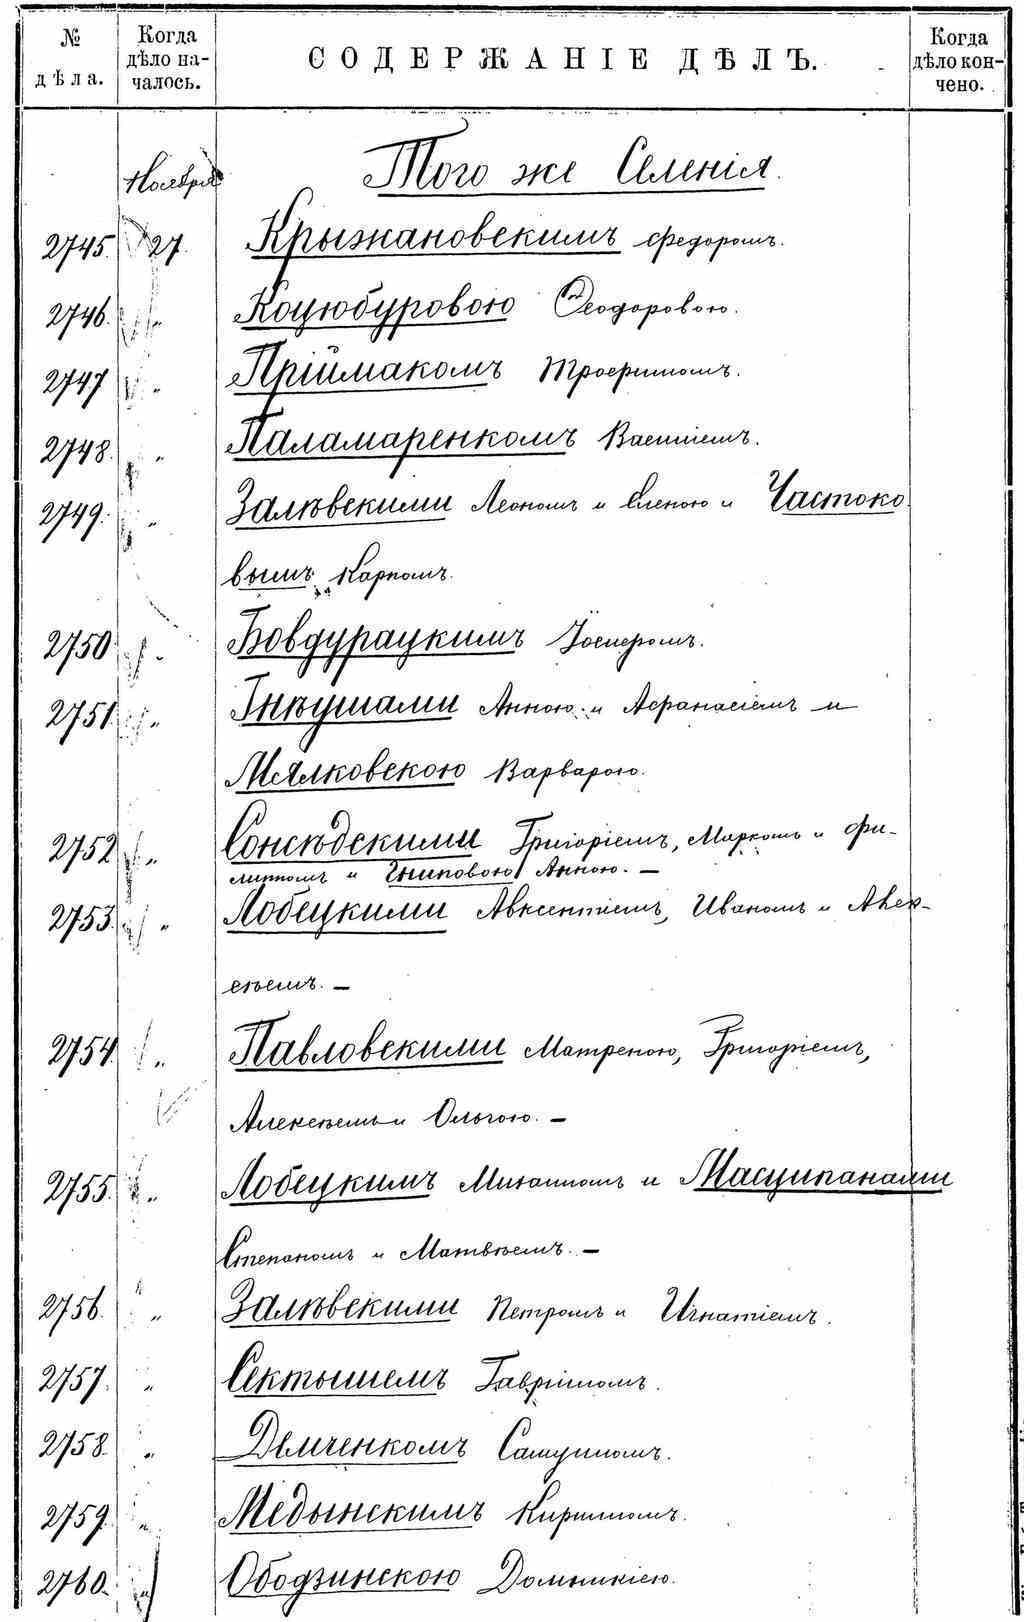 № дѣла.
Когда дѣло началось.
СОДЕРЖАНІЕ ДѢЛЪ.
Когда дѣло кончено.
Ноября
Того же Селенія.
2745. 27. Крыжановскимъ Федоромъ.
2746. „ Коцюбуровою Феодоровою.
2747 „ Пріймакомъ Трофимомъ.
2748. „ Паламаренкомъ Василіемъ.
2749. „ Залѣвскими Леономъ и Еленою и Частоко
вымъ Карпомъ.
2750. „ Бовдурацкимъ Іосифомъ.
2751. „ Гнѣушами Анною и Афанасіемъ и
Мялковскою Варварою.
2752 „ Сонсѣдскими Григоріемъ, Маркомъ и Фи-
липпомъ и Анною. —
2753. „ Лобецкими Авксентіемъ, Иваномъ и Алек-
сѣемъ. —
2754. „ Павловскими Матреною, Григоріемъ,
Алексѣемъ и Ольгою. —
2755. „ Лобецкимъ Михаиломъ и Масципанами
Степаномъ и Матвѣемъ. —
2756. „ Залѣвскими Петромъ и Игнатіемъ.
2757. „ Сектышемъ Гавріиломъ.
2758. „ Демченкомъ Самуиломъ.
2759. „ Медынскимъ Кириломъ.
2760. „ Ободзинскою Домникіею.